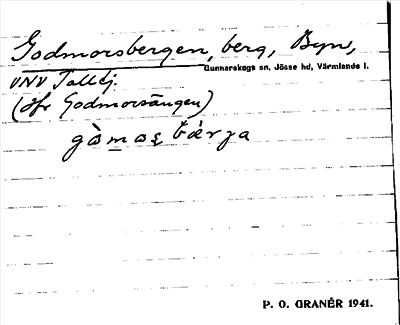 Godmorsbergen, berg, Byn,
Gunnarskogs sn, Jösse hd, Värmlands l.
VNV Talltj.
(Jfr Godmorsängen)
P. O. GRANÉR 1941.